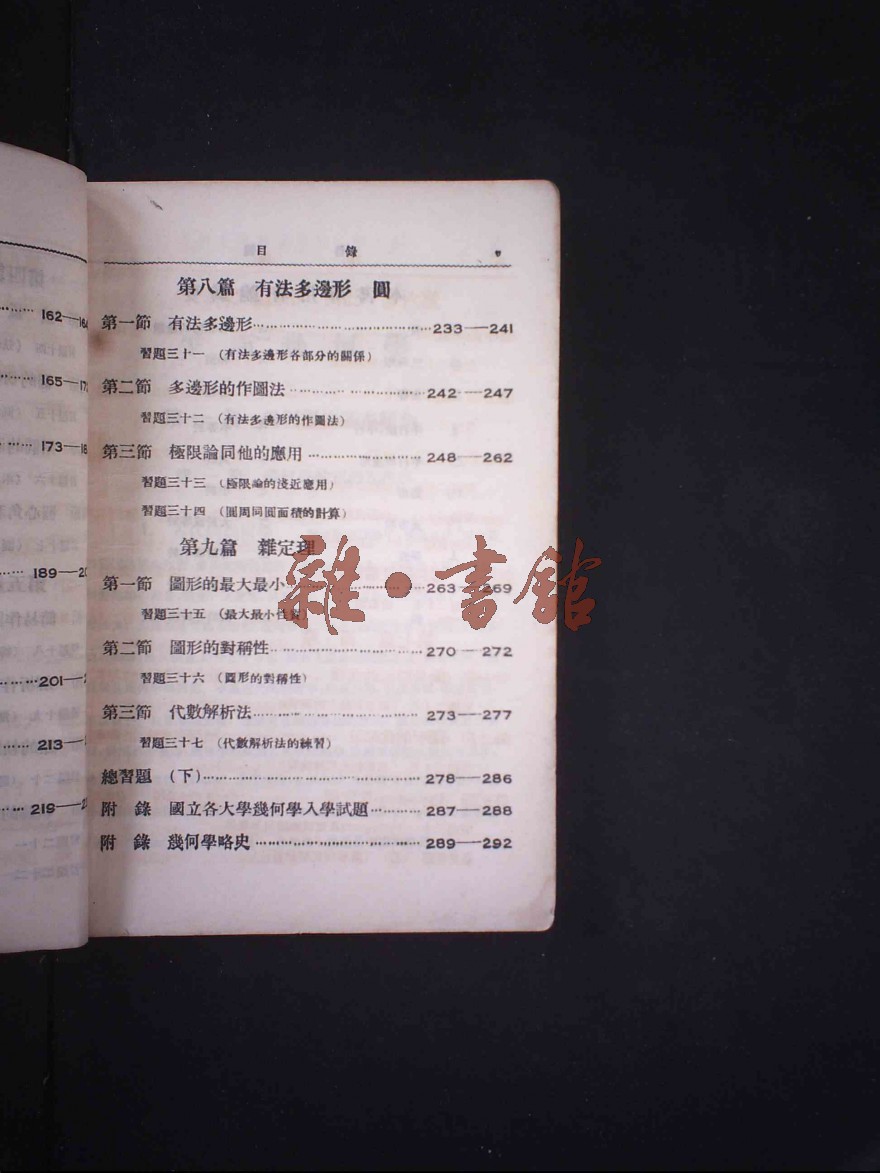 162—16
165—17
173—18
189—20
201—2
213—
219—2
目 錄 v
第八篇 有法多邊形 圓
第一節 有法多邊形……………………233——241
習題三十一 (有法多邊形各部分的關係)
第二節 多邊形的作圖法………………242——247
習題三十二 (有法多邊形的作圖法)
第三節 極限論同他的應用……………248——262
習題三十三 (極限論的淺近應用)
習題三十四 (圓周同圓面積的計算)
第九篇 雜定理
第一節 圖形的最大最小………………263——269
習題三十五 (最大最小性質)
第二節 圖形的對稱性…………………270—272
習題三十六 (圖形的對稱性)
第三節 代數解析法……………………273——277
習題三十七 (代數解析法的練習)
總習題 (下)……………………………278——286
附 錄 國立各大學幾何學入學試題………287——288
附 錄 幾何學略史……………………289——292
雜·書館